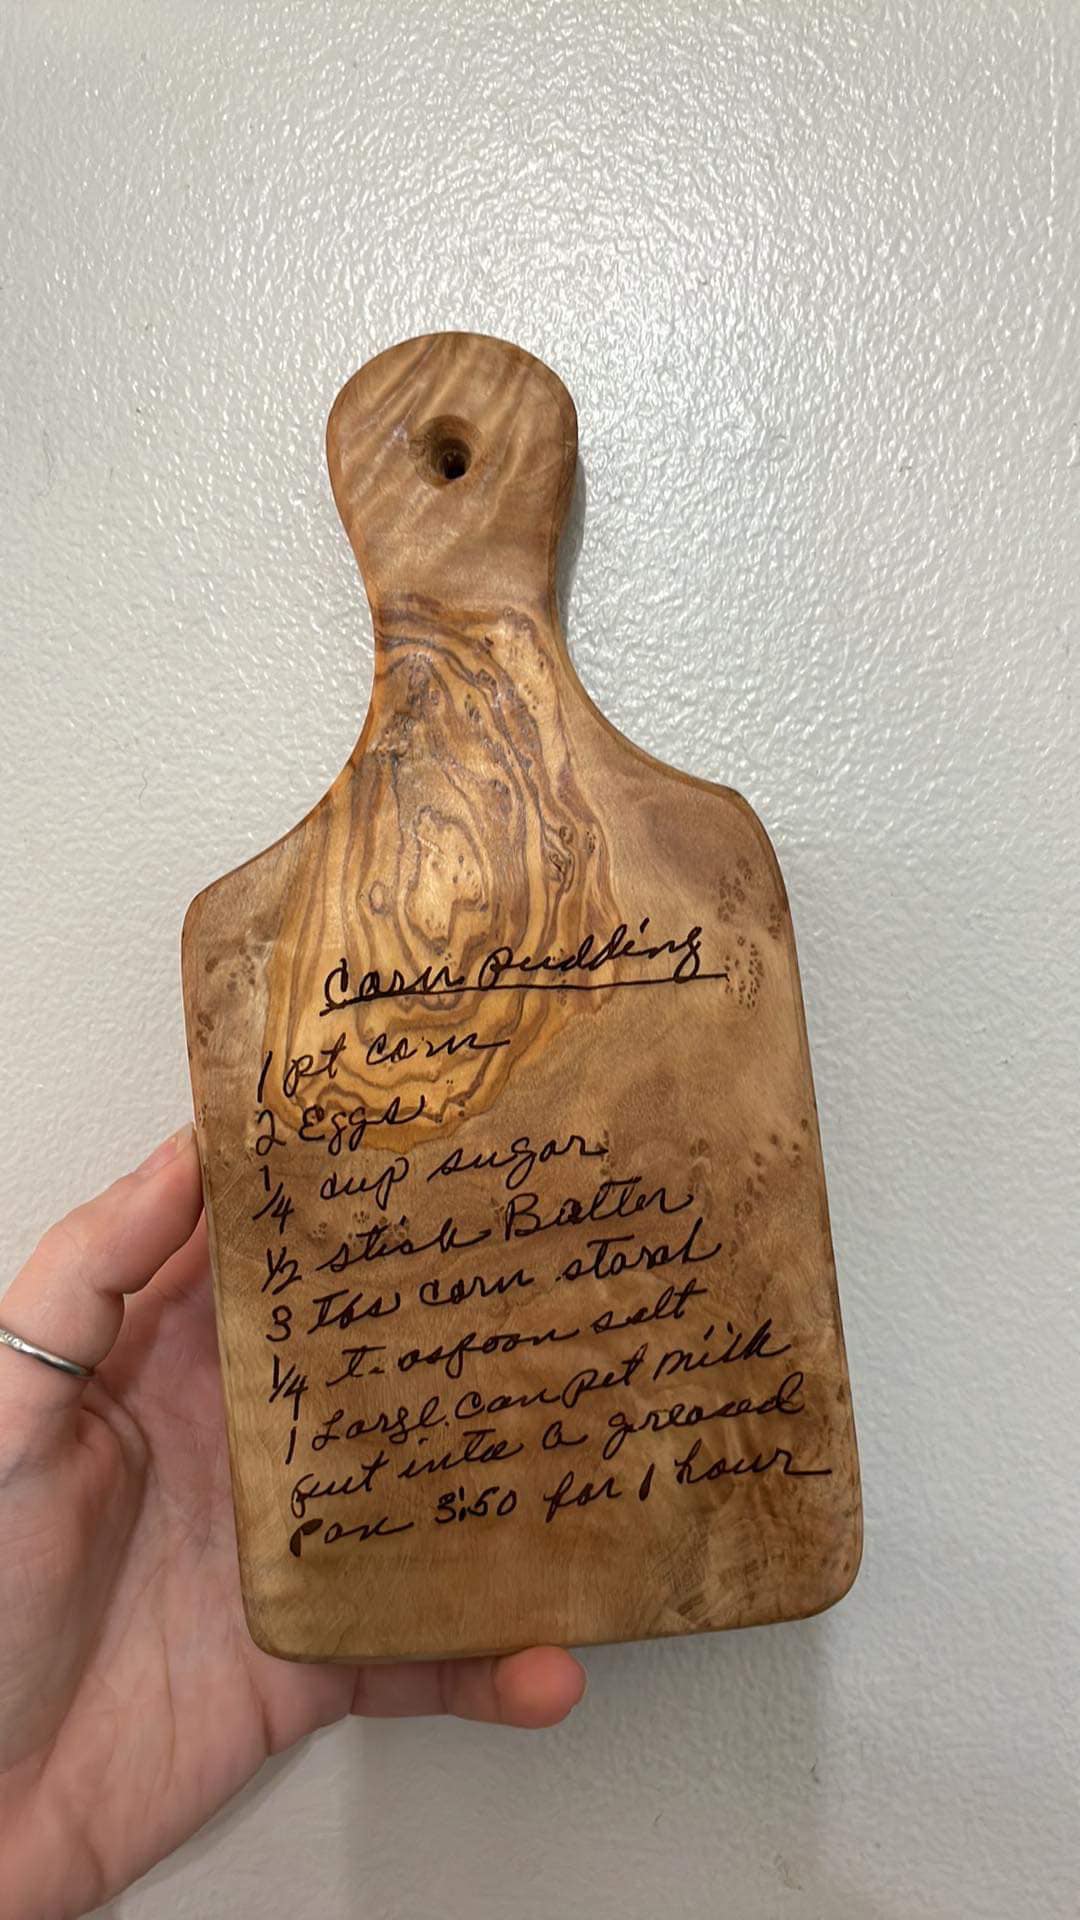 Corn pudding
1 pt corn
2 Eggs
1/4 cup sugar
1/2 stick Butter
3 Tbs corn starch
1/4 teaspoon salt
1 Large can pet milk
put into a greased
Pan 3:50 for 1 hour